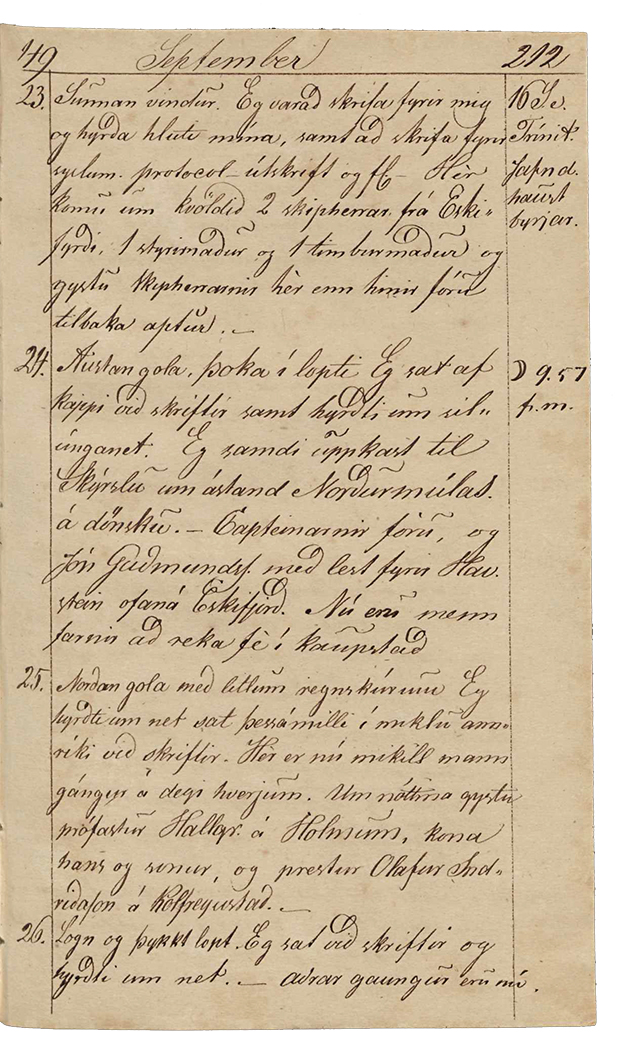 49 September 212
23. Sunnan vindur. Eg varad skrifa fyrir mig
og hyrda hluti mína, samt ad skrifa fyrir
syslum. protocol-útskrift og fl- Hér
komu um kvöldid 2 skipherrar frá Eski-
fyrdi, 1 styrimadur og 1 timburmadur og
gystu skipherrarnir hér enn hinir fóru
tilbaka aptur. -
16 Se.
Trínit.
Japnd.
haust
byrjar.
24. Austan gola, þoka í lopti Eg sat af
kappi vid skriftir samt hyrdti um sil-
unganet. Eg samdi uppkast til
Skýrslu um ástand Nordurmúlas.
á dönsku. - Capteinarnir fóru, og
Jón Gudmundss. med lest fyrir Hav-
stein ofaná Eskifjörd. Nú eru menn
farnir ad reka fé í kaupstad
☽ 9.57
f.m.
25. Nordan gola med litlum regnskúrum Eg
hyrdti um net sat þessámilli í miklu ann-
ríki vid skriftir. Hér er nú mikill mann
gángur á degi hverjum. Um nóttina gystu
prófastur Hallgr. á Holmum, kona
hans og sonur, og prestur Olafur Ind-
ridason á Kolfreyustad. -
26. Logn og þykkt lopt. Eg sat vid skriftir og
hyrdti um net. - adrar gaungur eru nú.